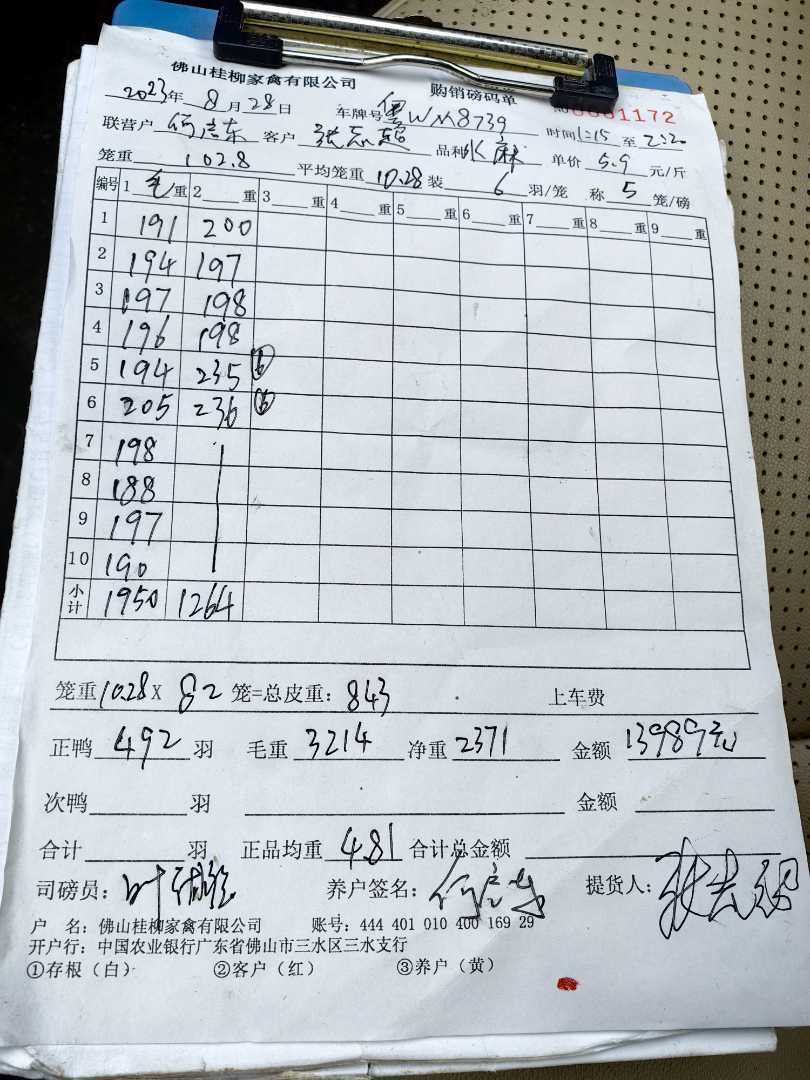 佛山桂柳家禽有限公司 购销磅码单
2023年 8月28日 车牌号 粤WM8739 时间1:15至2:20
联营户 何 东 客户 张志 品种水麻 单价 5.9 元/斤
笼重 102.8 平均笼重 10.28 装 6 羽/笼 称 5 笼/磅
编号 1 毛重 2 重 3 重 4 重 5 重 6 重 7 重 8 重 9 重
1 191 200
2 194 197
3 197 198
4 196 198
5 194 235 ⑥
6 205 236 ⑥
7 198
8 188
9 197
10 190
小计 1950 1264
笼重10.28 X 82 笼=总皮重: 843 上车费
正鸭 492 羽 毛重 3214 净重 2371 金额 13989元
次鸭 羽 金额
合计 羽 正品均重 4.81 合计总金额
司磅员: 叶 养户签名: 何 东 提货人: 张志
户 名: 佛山桂柳家禽有限公司 账号: 444 401 010 400 169 29
开户行: 中国农业银行广东省佛山市三水区三水支行
①存根（白） ②客户（红） ③养户（黄）